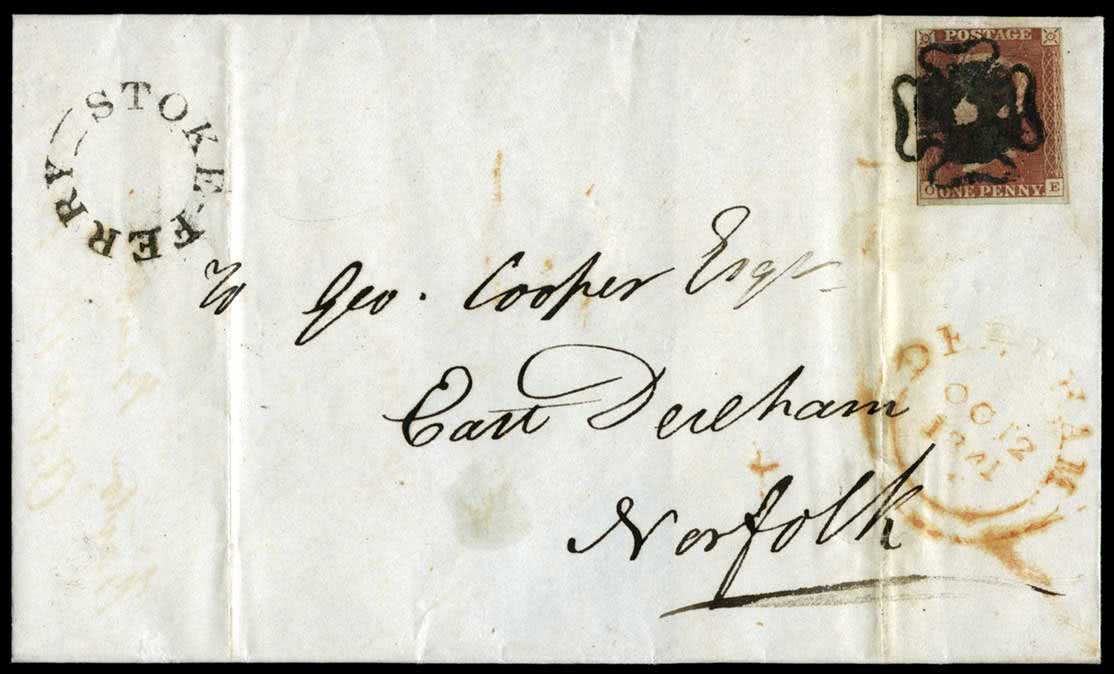 STOKE-FERRY
POSTAGE
O ONE PENNY E
To Geo. Cooper Esqr
East Dereham
Norfolk
DEREHAM
OC 12
1841